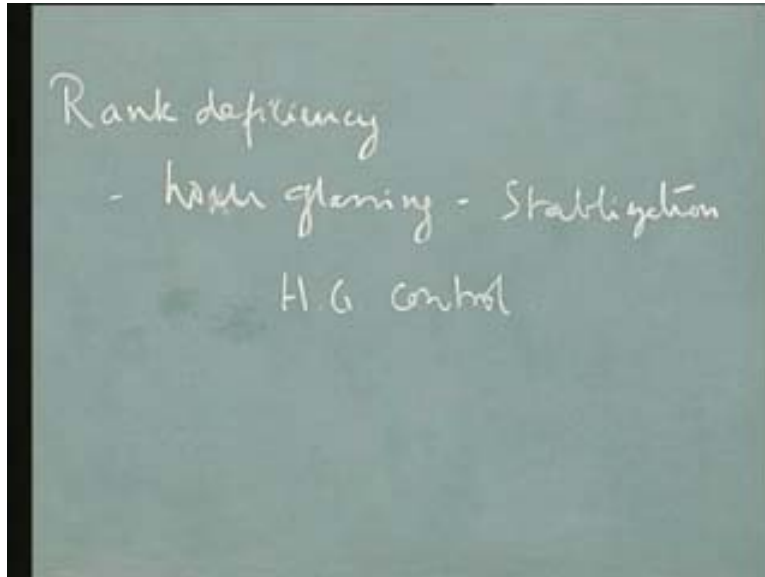 Rank deficiency
- hour glassing - Stabligation
H.G control